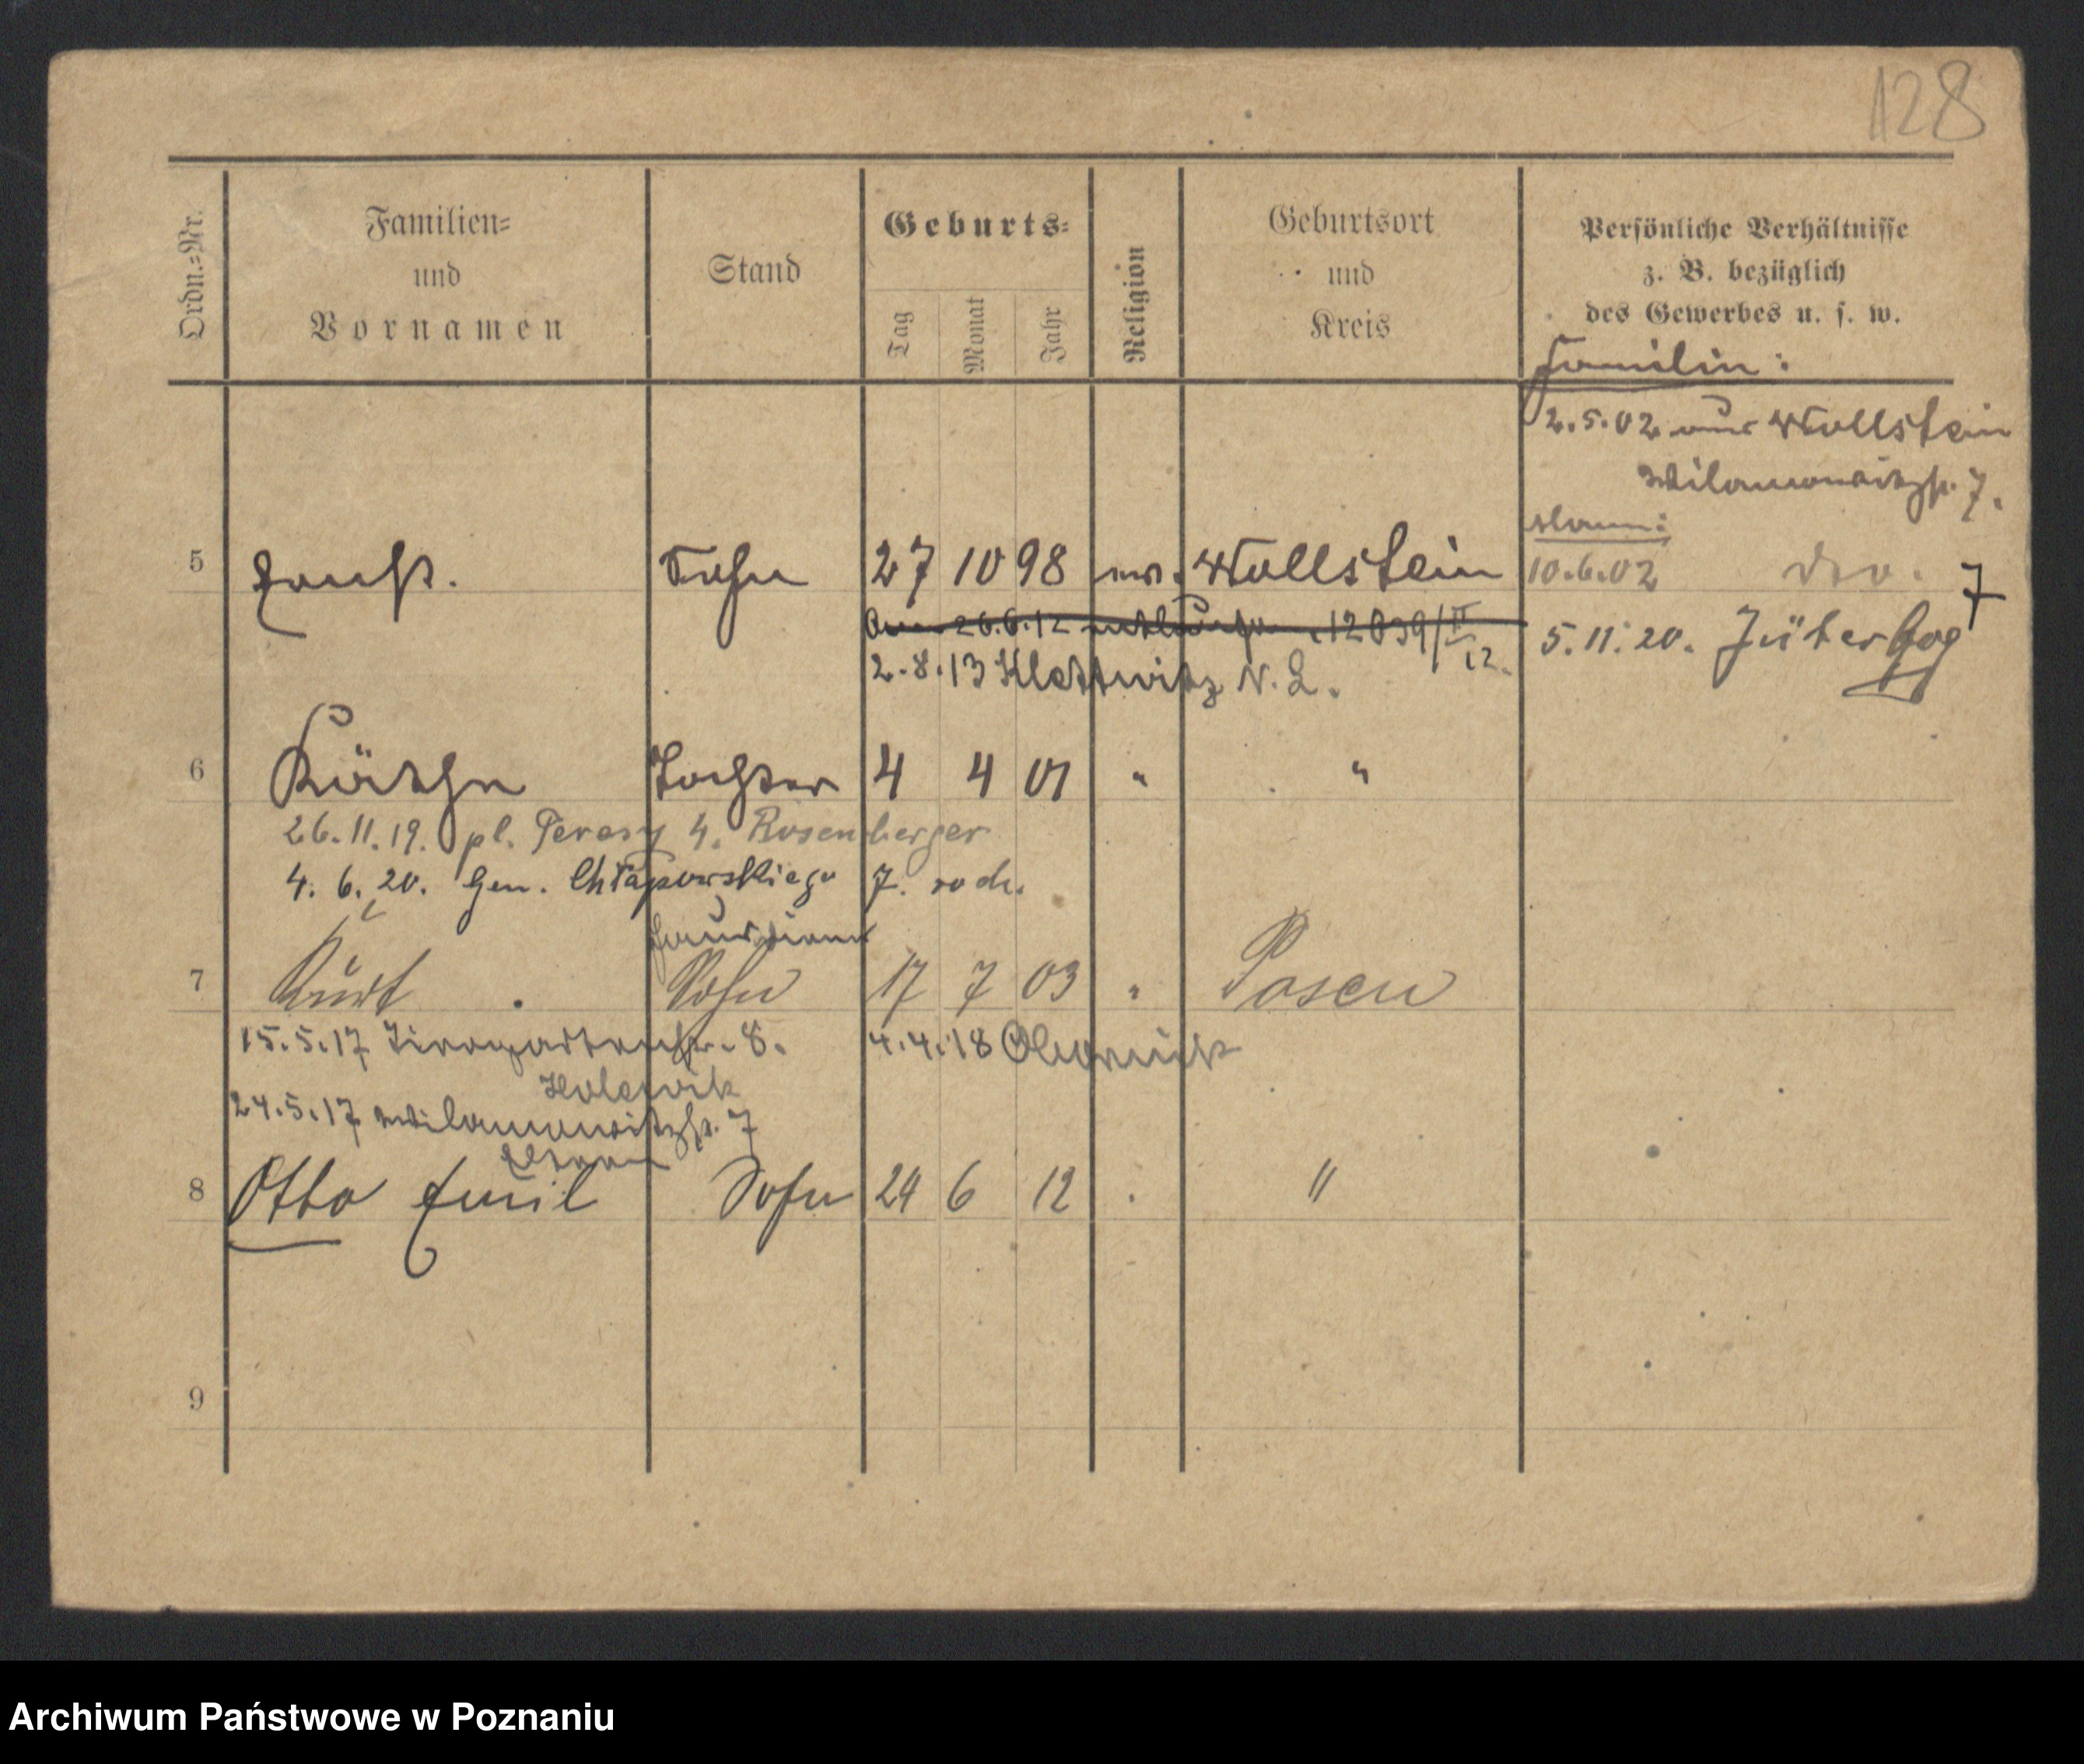 128
Ordn.-Nr.
Familien-
und
Vornamen
Stand
Geburts-
Tag
Monat
Jahr
Religion
Geburtsort
und
Kreis
Persönliche Verhältnisse
z. B. bezüglich
des Gewerbes u. s. w.
Familie:
2.5.02 aus Wollstein
Wilamowitzstr. 7.
5 Ernst. Sohn 27 10 98 ev. Wollstein
10.6.02 7
26.6.12 12039/II 12.
5.11.20. Jüterbog
2.8.13 Klettwitz N.L.
6 Käthe Tochter 4 4 01 " "
26.11.19. pl. 4. Rosenberger
4.6.20. Gen. Chłapowskiego 7. rodz.
7 Kurt Sohn 17 7 03 " Posen
15.5.17 Tiergartenstr. 8. 4.4.18 Obornik
24.5.17 Wilamowitzstr. 7
Eltern
8 Otto Emil Sohn 24 6 12 "
9
Archiwum Państwowe w Poznaniu